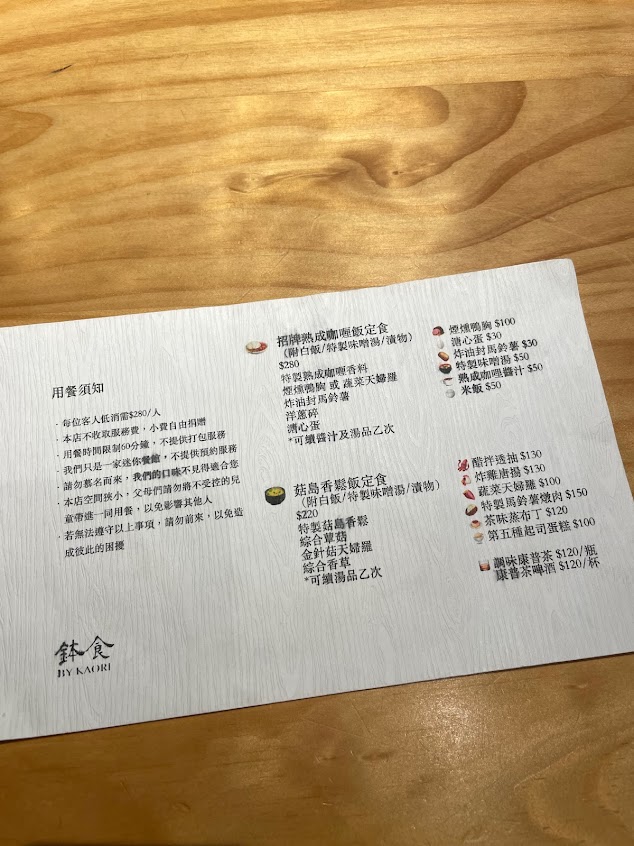 用餐須知
· 每位客人低消需$280/人
· 本店不收取服務費，小費自由捐贈
· 用餐時間限制60分鐘，不提供打包服務
· 我們只是一家迷你餐館，不提供預約服務
請勿慕名而來，我們的口味不見得適合您
· 本店空間狹小，父母們請勿將不受控的兒
童帶進一同用餐，以免影響其他人
· 若無法遵守以上事項，請勿前來，以免造
成彼此的困擾
鉢食
BY KAORI
招牌熟成咖喱飯定食
(附白飯/特製味噌湯/漬物)
$280
特製熟成咖喱香料
煙燻鴨胸 或 蔬菜天婦羅
炸油封馬鈴薯
洋蔥碎
溏心蛋
*可續醬汁及湯品乙次
菇島香鬆飯定食
(附白飯/特製味噌湯/漬物)
$220
特製菇島香鬆
綜合蕈菇
金針菇天婦羅
綜合香草
*可續湯品乙次
煙燻鴨胸 $100
溏心蛋 $30
炸油封馬鈴薯 $30
特製味噌湯 $50
熟成咖哩醬汁 $50
米飯 $50
醋拌透抽 $130
炸雞唐揚 $130
蔬菜天婦羅 $100
特製馬鈴薯燉肉 $150
茶味蒸布丁 $120
第五種起司蛋糕 $100
調味康普茶 $120/瓶
康普茶啤酒 $120/杯